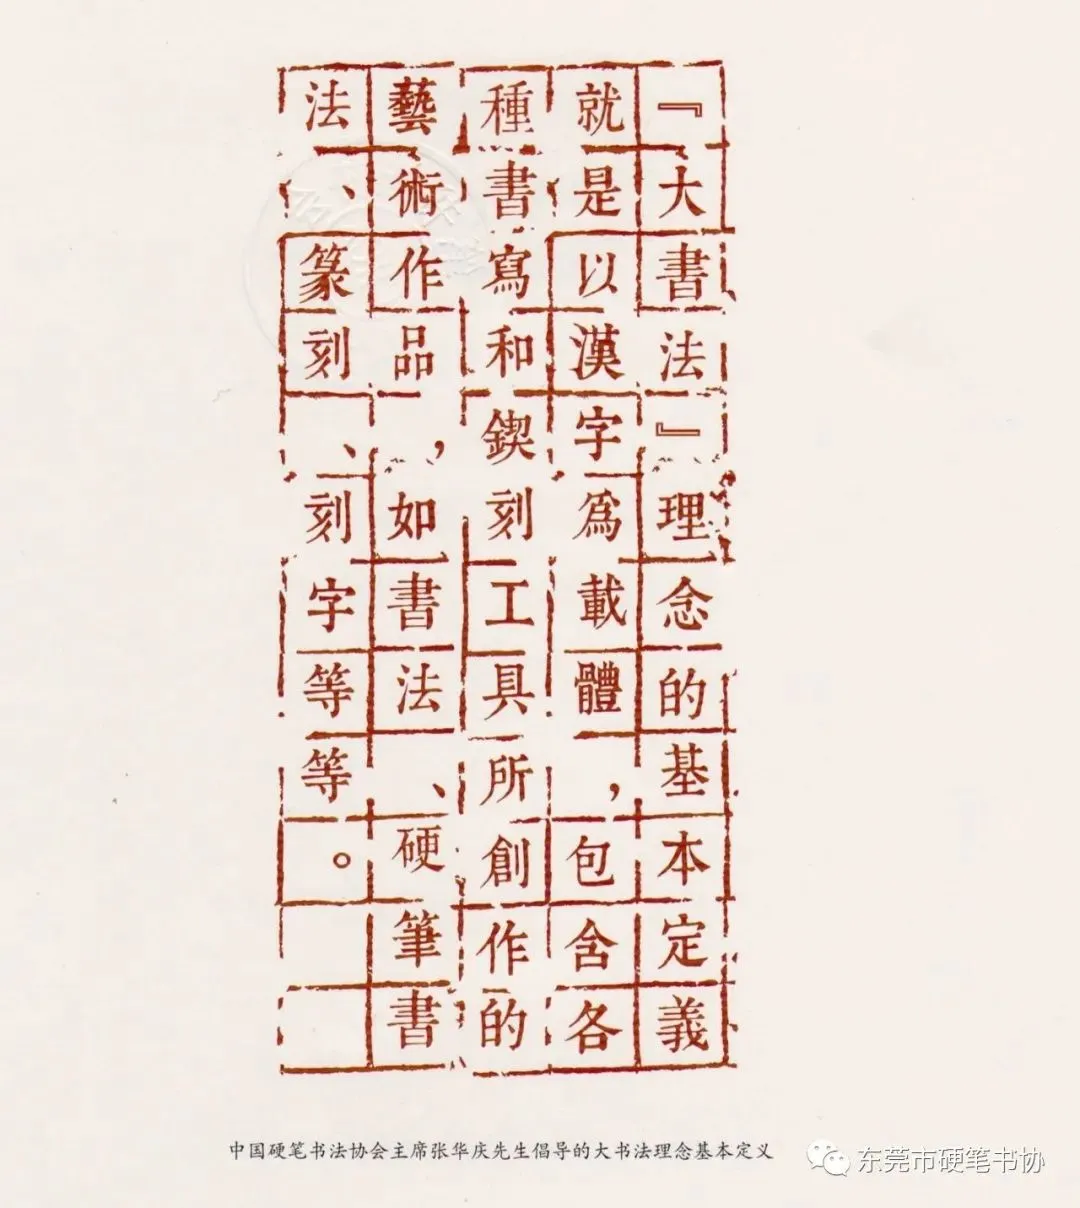 『大書法』理念的基本定義
就是以漢字爲載體，包含各
種書寫和鍥刻工具所創作的
藝術作品，如書法、硬筆書
法、篆刻、刻字等等。
中国硬笔书法协会主席张华庆先生倡导的大书法理念基本定义
东莞市硬笔书协